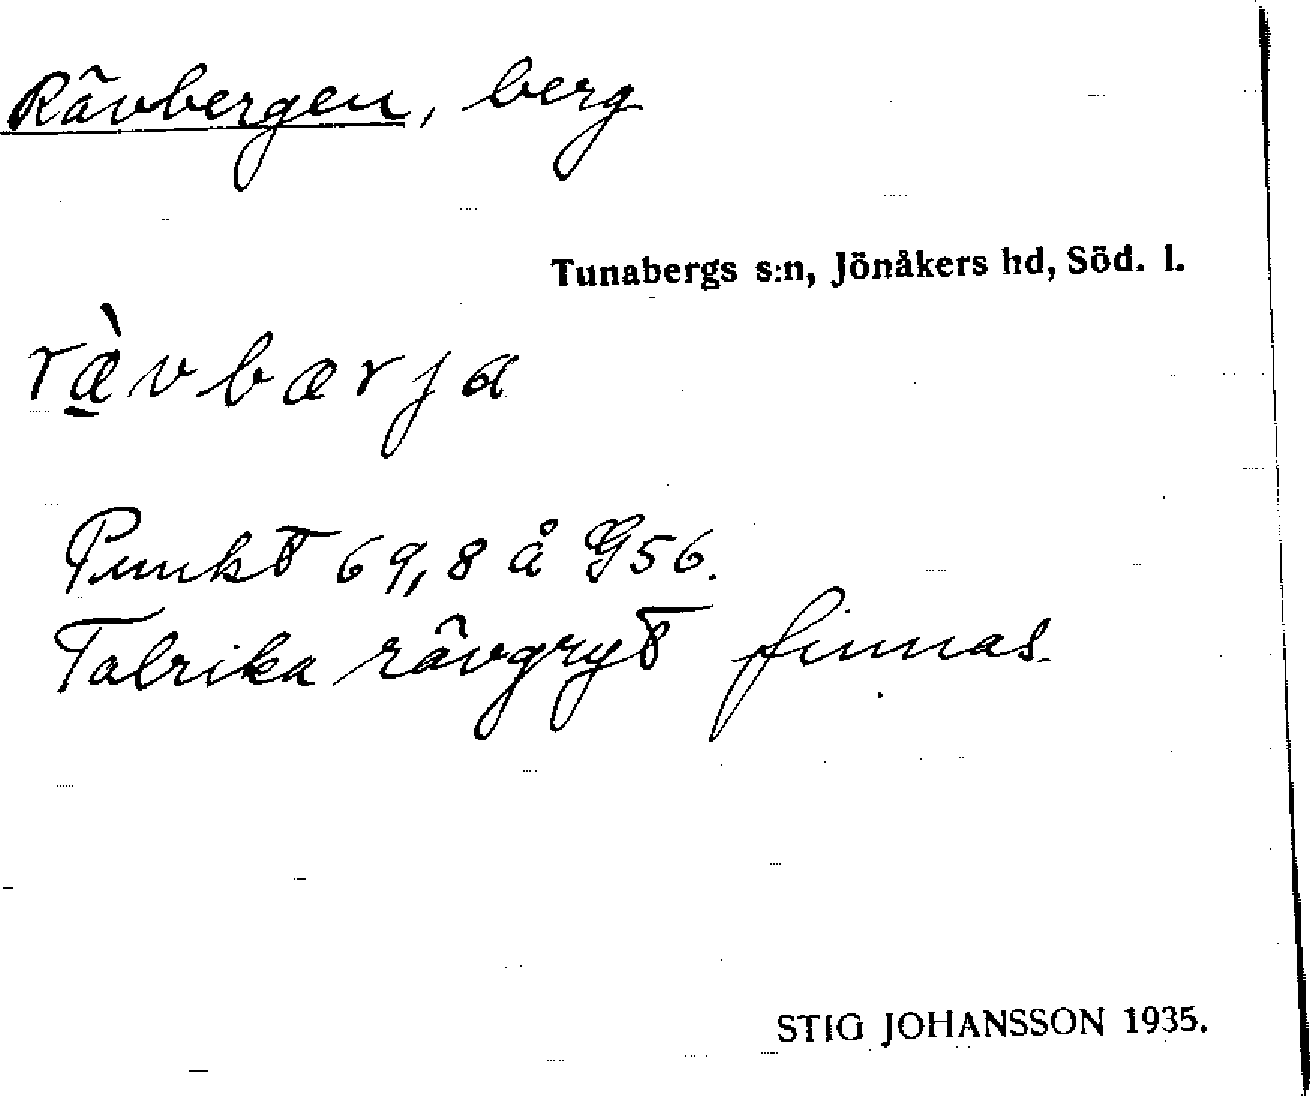 Rävbergen, berg
Tunabergs s:n, Jönåkers hd, Söd. l.
ræ̠̀vbærja
Punkt 69,8 å G56.
Talrika rävgryt finnas.
STIG JOHANSSON 1935.